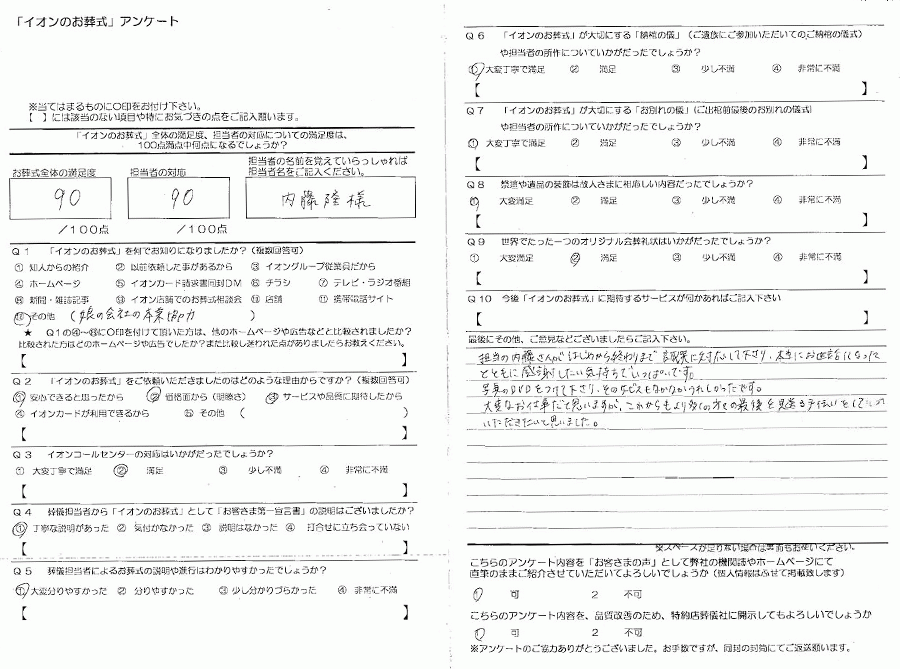 「イオンのお葬式」アンケート
※当てはまるものに〇印をお付け下さい。
【 】には該当のない項目や特にお気づきの点をご記入願います。
「イオンのお葬式」全体の満足度、担当者の対応についての満足度は、
100点満点中何点になるでしょうか？
お葬式全体の満足度
90
／100点
担当者の対応
90
／100点
担当者の名前を覚えていらっしゃれば
担当者名をご記入ください。
内藤隆様
Q１ 「イオンのお葬式」を何でお知りになりましたか？（複数回答可）
① 知人からの紹介 ② 以前依頼した事があるから ③ イオングループ従業員だから
④ ホームページ ⑤ イオンカード請求書同封DM ⑥ チラシ ⑦ テレビ・ラジオ番組
⑧ 新聞・雑誌記事 ⑨ イオン店舗でのお葬式相談会 ⑩ 店舗 ⑪ 携帯電話サイト
⑫ その他 （娘の会社の本業協力
★ Q１の④〜⑪に〇印を付けて頂いた方は、他のホームページや広告などと比較されましたか？
比較された方はどのホームページや広告でしたか？また比較し迷われた点がありましたらお教えください。
【 】
Q２ 「イオンのお葬式」をご依頼いただきましたのはどのような理由からですか？（複数回答可）
① 安心できると思ったから ② 価格面から（明瞭さ） ③ サービスや品質に期待したから
④ イオンカードが利用できるから ⑤ その他 （ ）
【 】
Q３ イオンコールセンターの対応はいかがだったでしょうか？
① 大変丁寧で満足 ② 満足 ③ 少し不満 ④ 非常に不満
【 】
Q４ 葬儀担当者から「イオンのお葬式」として「お客さま第一宣言書」の説明はございましたか？
① 丁寧な説明があった ② 気付かなかった ③ 説明はなかった ④ 打合せに立ち会っていない
【 】
Q５ 葬儀担当者によるお葬式の説明や進行はわかりやすかったでしょうか？
① 大変分りやすかった ② 分りやすかった ③ 少し分かりづらかった ④ 非常に不満
【 】
Q６ 「イオンのお葬式」が大切にする「納棺の儀」（ご遺族にご参加いただいてのご納棺の儀式）
や担当者の所作についていかがだったでしょうか？
① 大変丁寧で満足 ② 満足 ③ 少し不満 ④ 非常に不満
【 】
Q７ 「イオンのお葬式」が大切にする「お別れの儀」（ご出棺前最後のお別れの儀式）
や担当者の所作についていかがだったでしょうか？
① 大変丁寧で満足 ② 満足 ③ 少し不満 ④ 非常に不満
【 】
Q８ 祭壇や遺品の装飾は故人さまに相応しい内容だったでしょうか？
① 大変満足 ② 満足 ③ 少し不満 ④ 非常に不満
【 】
Q９ 世界でたった一つのオリジナル会葬礼状はいかがだったでしょうか？
① 大変満足 ② 満足 ③ 少し不満 ④ 非常に不満
【 】
Q１０ 今後「イオンのお葬式」に期待するサービスが何かあればご記入下さい
【 】
最後にその他、ご意見などございましたらご記入下さい。
担当の内藤さんがはじめから終わりまで誠実に対応して下さり、本当にお世話になった
とともに感謝したい気持ちでいっぱいです。
写真のDVDをつけて下さり、そのサービスもなかなかうれしかったです。
大変なお仕事だと思いますが、これからもより多くの方々の最後を見送る手伝いをして
いただきたいと思いました。
※スペースが足りない場合は裏面もお使いください。
こちらのアンケート内容を「お客さまの声」として弊社の機関誌やホームページにて
直筆のままご紹介させていただいてよろしいでしょうか（個人情報はふせて掲載致します）
１ 可 ２ 不可
こちらのアンケート内容を、品質改善のため、特約店葬儀社に開示してもよろしいでしょうか
１ 可 ２ 不可
※アンケートのご協力ありがとうございました。お手数ですが、同封の封筒にてご返送願います。